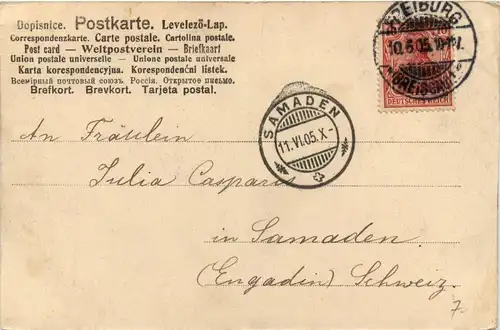 Dopisnice. Postkarte. Levelező-Lap.
Correspondenzkarte. Carte postale. Cartolina postale.
Post card — Weltpostverein — Briefkaart
Union postale universelle — Unione postale universale
Karta korespondencyjna. Korespondenční lístek.
Всемірный почтовый союзъ. Россія. Открытое письмо.
Brefkort. Brevkort. Tarjeta postal.
FREIBURG
10.6.05.
(BREISGAU)
10
DEUTSCHES REICH
SAMADEN
11.VI.05.X-
An Fräulein
Julia Caspari
in Samaden.
(Engadin) Schweiz.
7.